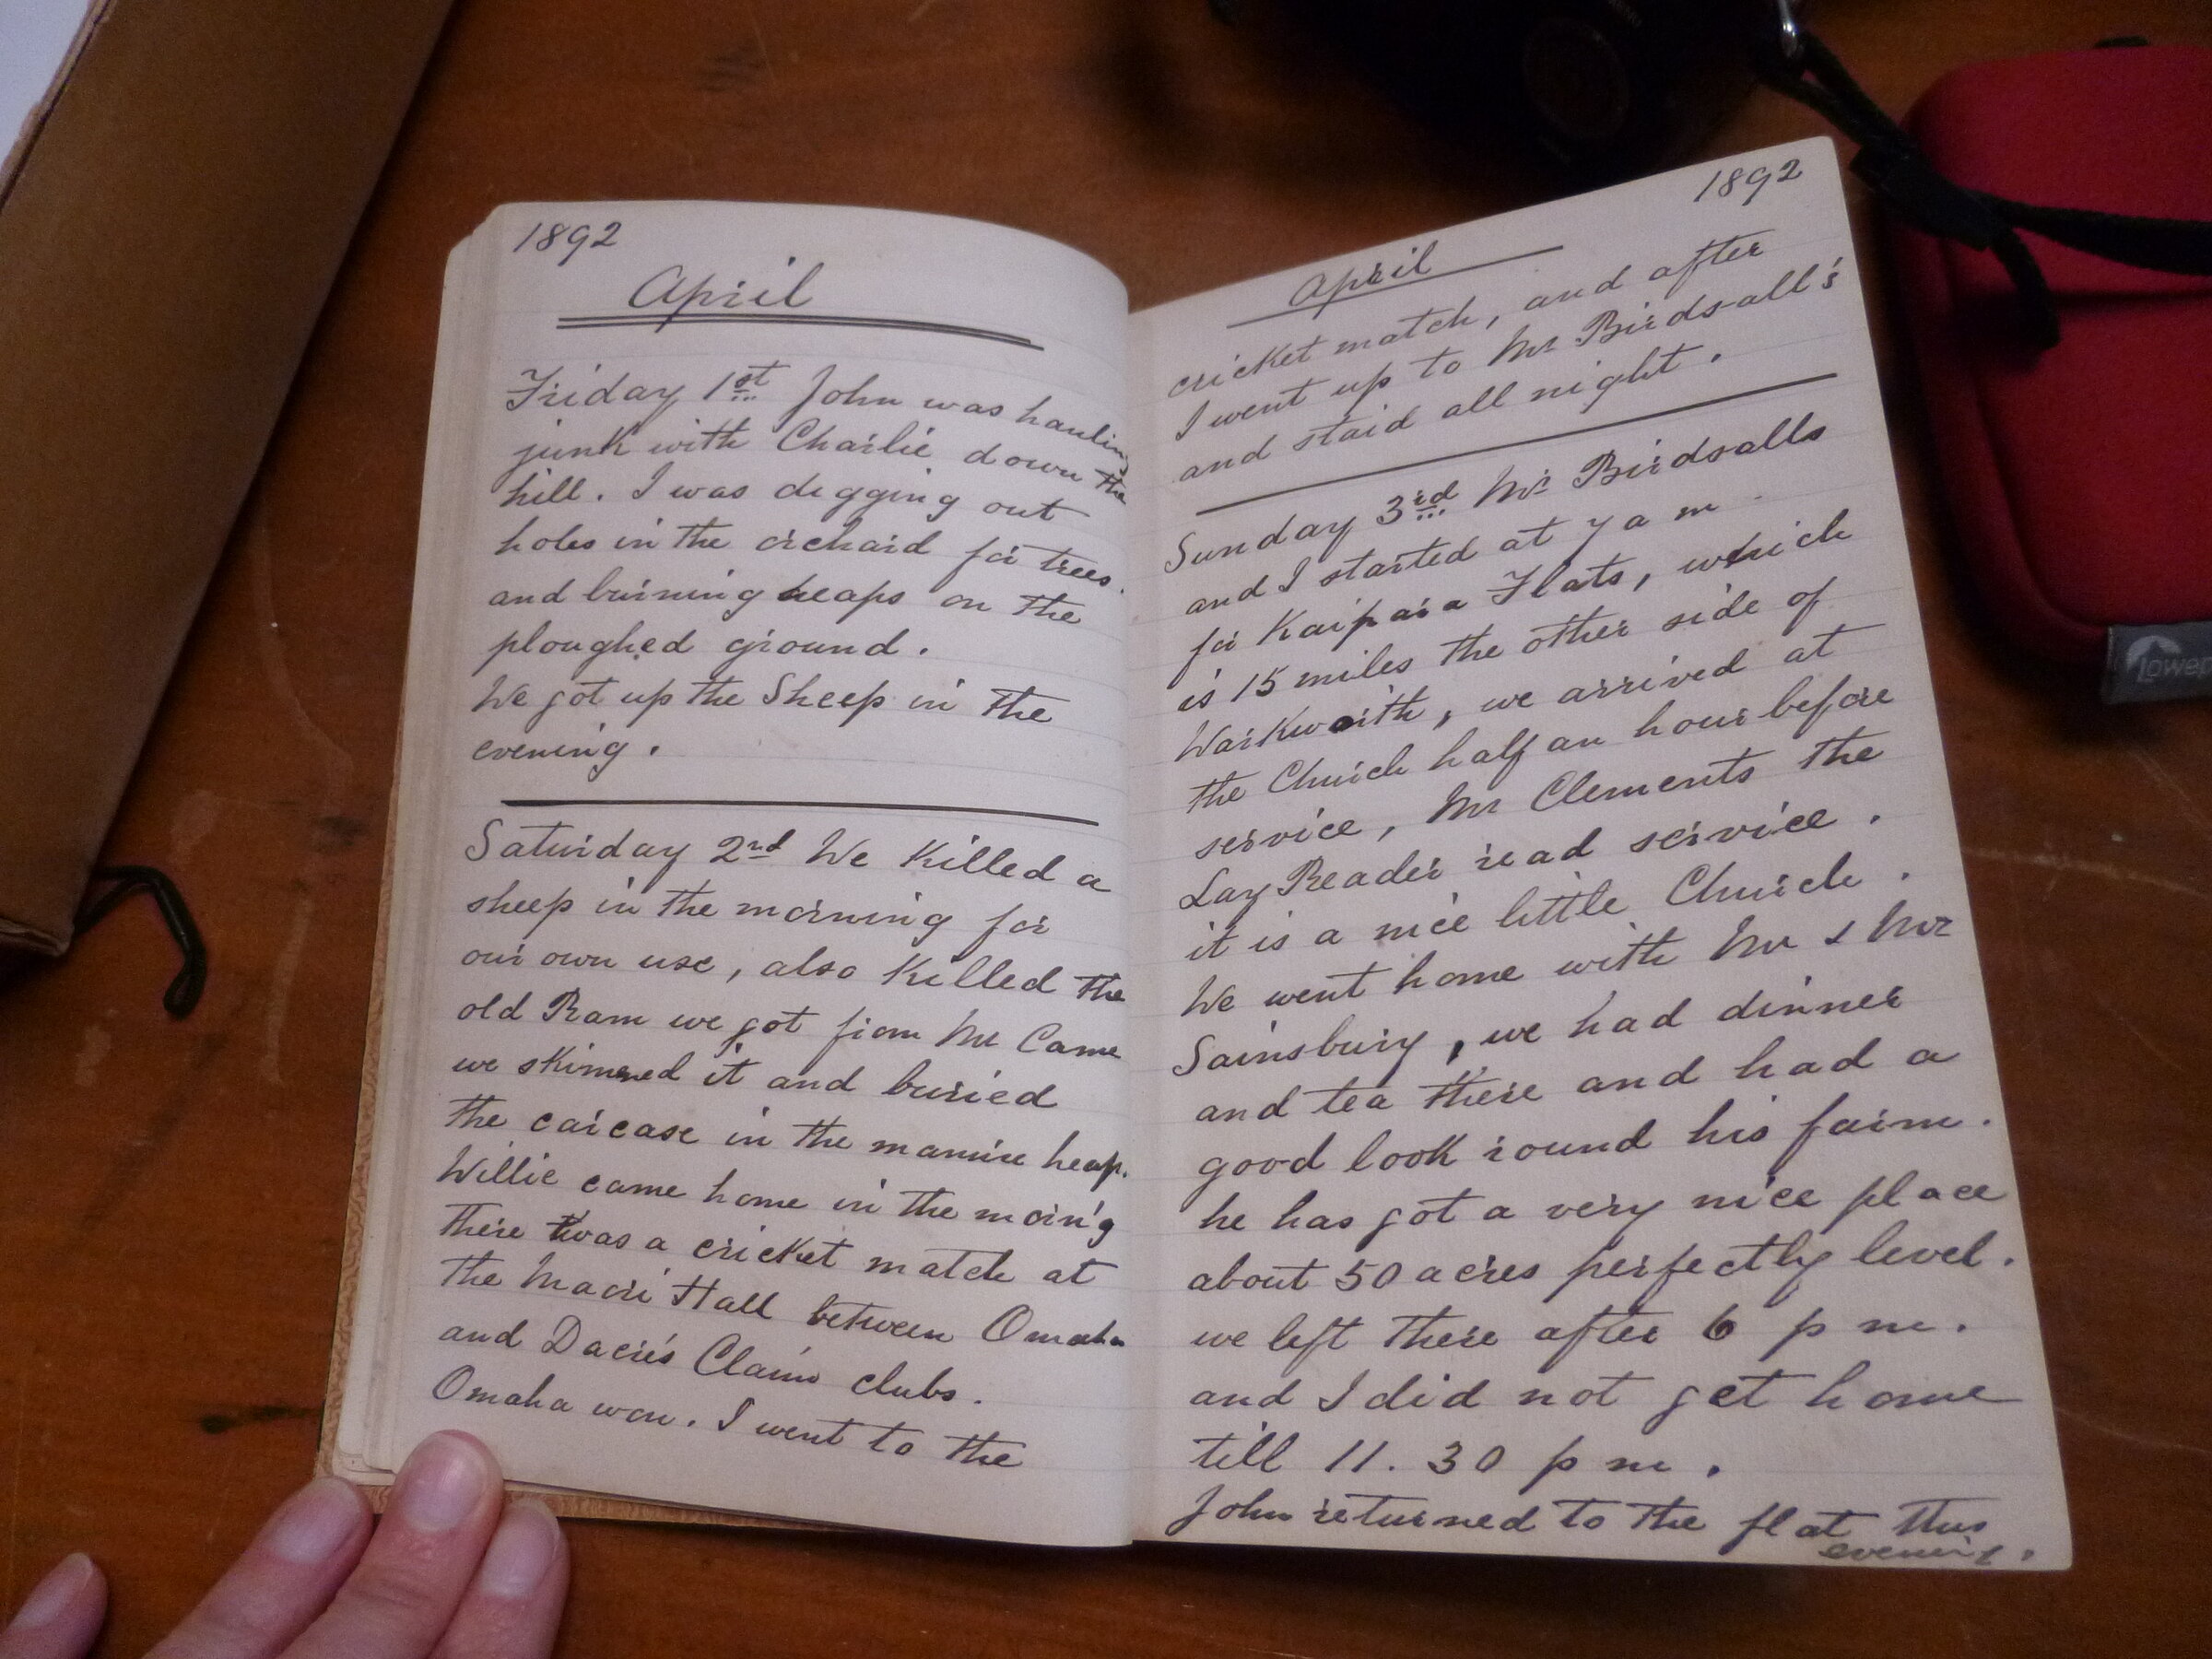 1892
April
Friday 1st John was hauling
junk with Charlie down the
hill. I was digging out
holes in the orchard for trees.
and burning heaps on the
ploughed ground.
We got up the Sheep in the
evening.
Saturday 2nd We Killed a
sheep in the morning for
our own use, also Killed the
old Ram we got from Mr Came
we skinned it and buried
the carcase in the manure heap.
Willie came home in the morn'g
there was a cricket match at
the Maori Hall between Omaha
and Dacre's Claim clubs.
Omaha won. I went to the
1892
April
cricket match, and after
I went up to Mr Birdsall's
and staid all night.
Sunday 3rd Mr Birdsalls
and I started at 7 a m
for Kaipara Flats, which
is 15 miles the other side of
Warkworth, we arrived at
the Church half an hour before
service, Mr Clements the
Lay Reader read service.
it is a nice little Church.
We went home with Mr & Mrs
Sainsbury, we had dinner
and tea there and had a
good look round his farm.
he has got a very nice place
about 50 acres perfectly level.
we left there after 6 p m.
and I did not get home
till 11.30 p m.
John returned to the flat this
evening.
Lowep